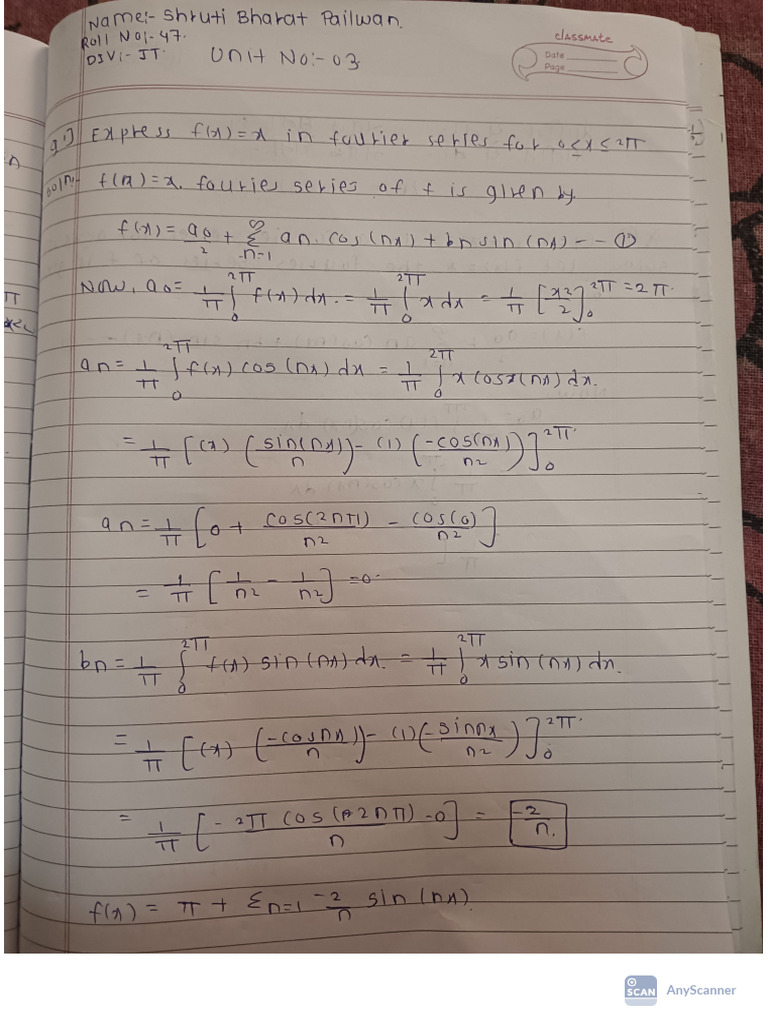 Name:- Shruti Bharat Pailwan.
Roll No:- 47.
DIV:- IT.
Unit No:- 03
classmate
Date
Page
Q.1) Express f(x) = x in fourier series for 0 ≤ x ≤ 2π
soln. f(x) = x. fourier series of f is given by
f(x) = a0/2 + ∞Σn=1 an. cos(nx) + bn sin(nx) -- ①
Now, a0 = 1/π ∫₀^2π f(x) dx. = 1/π ∫₀^2π x dx = 1/π [x²/2]₀^2π = 2π.
an = 1/π ∫₀^2π f(x) cos(nx) dx = 1/π ∫₀^2π x cosx(nx) dx.
= 1/π [(x) (sin(nx)/n) - (1) (-cos(nx)/n²)]₀^2π.
an = 1/π [0 + cos(2nπ)/n² - cos(0)/n²]
= 1/π [1/n² - 1/n²] = 0.
bn = 1/π ∫₀^2π f(x) sin(nx) dx. = 1/π ∫₀^2π x sin(nx) dx.
= 1/π [(x) (-cosnx/n) - (1) (-sinnx/n²)]₀^2π.
= 1/π [-2π cos(2nπ) - 0/n] = -2/n.
f(x) = π + Σn=1 -2/n sin(nx)
SCAN AnyScanner